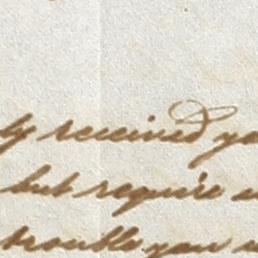 ly received yo
but require
trouble you